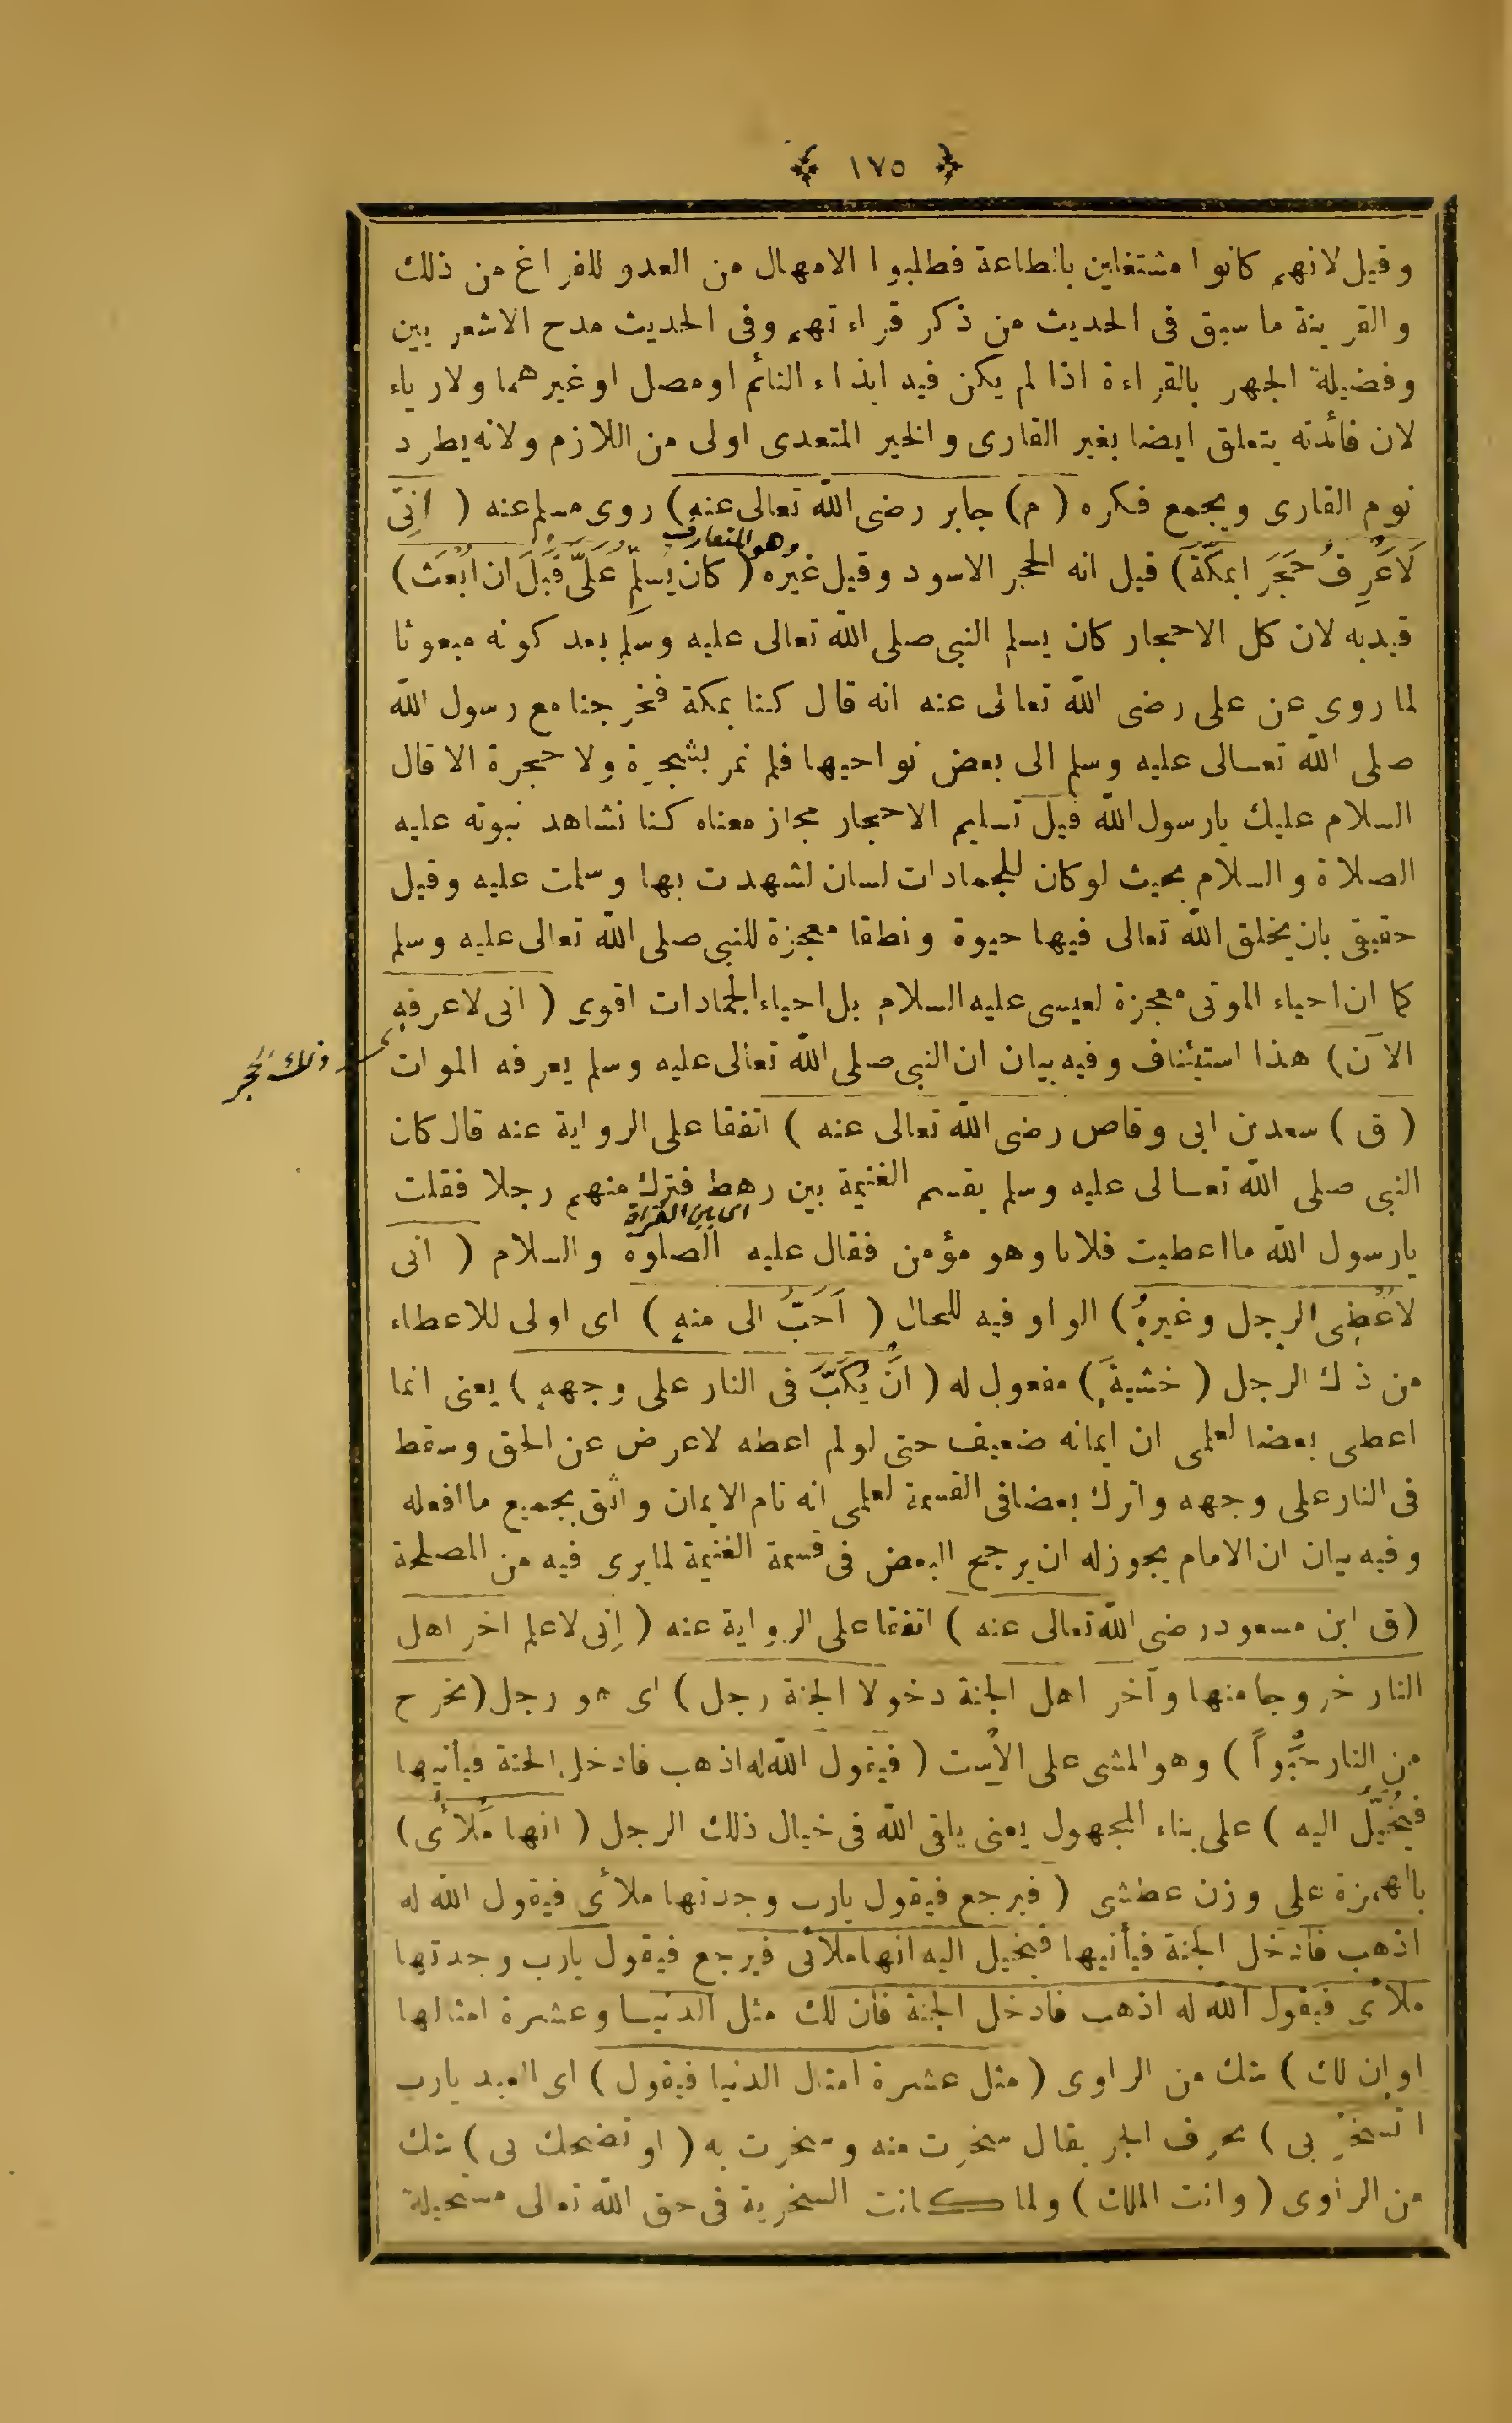 ١٧٥
وقيل لانهم كانوا مشتغلين بالطاعة فطلبوا الامهال من العدو للفراغ من ذلك
والقرينة ما سبق فى الحديث من ذكر قراءتهم وفى الحديث مدح الاشعريين
وفضيلة الجهر بالقراءة اذا لم يكن فيه ايذاء النائم او مصل او غيرهما ولا رياء
لان فائدته يتعلق ايضا بغير القارى والخير المتعدى اولى من اللازم ولانه يطرد
نوم القارى ويجمع فكره (م) جابر رضى الله تعالى عنه) روى مسلم عنه (اِنِّى
وهو المتعارف
لَاَعْرِفُ حَجَرَا بمكَّةَ) قيل انه الحجر الاسود وقيل غيره (كان يُسلِّمُ عَلَىَّ قَبْلَ ان اُبْعَثَ)
قيد به لان كل الاحجار كان يسلم النبى صلى الله تعالى عليه وسلم بعد كونه مبعوثا
لما روى عن على رضى الله تعالى عنه انه قال كنا بمكة فخرجنا مع رسول الله
صلى الله تعالى عليه وسلم الى بعض نواحيها فلم نمر بشجرة ولا حجرة الا قال
السلام عليك يارسول الله قيل تسليم الاحجار مجاز معناه كنا نشاهد نبوته عليه
الصلاة والسلام بحيث لو كان للجمادات لسان لشهدت بها وسلمت عليه وقيل
حقيقى بان يخلق الله تعالى فيها حيوة ونطقا معجزة للنبى صلى الله تعالى عليه وسلم
كما ان احياء الموتى معجزة لعيسى عليه السلام بل احياء الجمادات اقوى (انى لاعرفه
الآن) هذا استيئناف وفيه بيان ان النبى صلى الله تعالى عليه وسلم يعرفه الموات
ذلك الحجر
(ق) سعد بن ابى وقاص رضى الله تعالى عنه) اتفقا على الرواية عنه قال كان
النبى صلى الله تعالى عليه وسلم يقسم الغنيمة بين رهط فترك منهم رجلا فقلت
يارسول الله ما اعطيت فلانا وهو مؤمن فقال عليه الصلوة والسلام (انى
لاُعْطِى الرجل وغيرهُ) الواو فيه للحال (اَحَبُّ الى منه) اى اولى للاعطاء
من ذلك الرجل (خشيةَ) مفعول له (انْ يُكَبَّ فى النار على وجهه) يعنى انما
اعطى بعضا لعلمى ان ايمانه ضعيف حتى لو لم اعطه لاعرض عن الحق وسقط
فى النار على وجهه واترك بعضا فى القسمة لعلمى انه تام الايمان واثق بجميع ما افعله
وفيه بيان ان الامام يجوز له ان يرجح البعض فى قسمة الغنيمة لما يرى فيه من المصلحة
(ق ابن مسعود رضى الله تعالى عنه) اتفقا على الرواية عنه (اِنى لاعلم اخر اهل
النار خروجا منها وآخر اهل الجنة دخولا الجنة رجل) اى هو رجل (يخرج
من النار حَبْواً) وهو المشى على الاِست (فيقول الله له اذهب فادخل الجنة فيأتيها
فيُخَيَّلُ اليه) على بناء المجهول يعنى يلقى الله فى خيال ذلك الرجل (انها مَلأى)
بالهمزة على وزن عطشى (فيرجع فيقول يارب وجدتها ملأى فيقول الله له
اذهب فادخل الجنة فيأتيها فيخيل اليه انها ملأى فيرجع فيقول يارب وجدتها
ملأى فيقول الله له اذهب فادخل الجنة فان لك مثل الدنيا وعشرة امثالها
او ان لك) شك من الراوى (مثل عشرة امثال الدنيا فيقول) اى العبد يارب
اتسخر بى) بحرف الجر يقال سخرت منه وسخرت به (او تضحك بى) شك
من الراوى (وانت الملك) ولما كانت السخرية فى حق الله تعالى مستحيلة